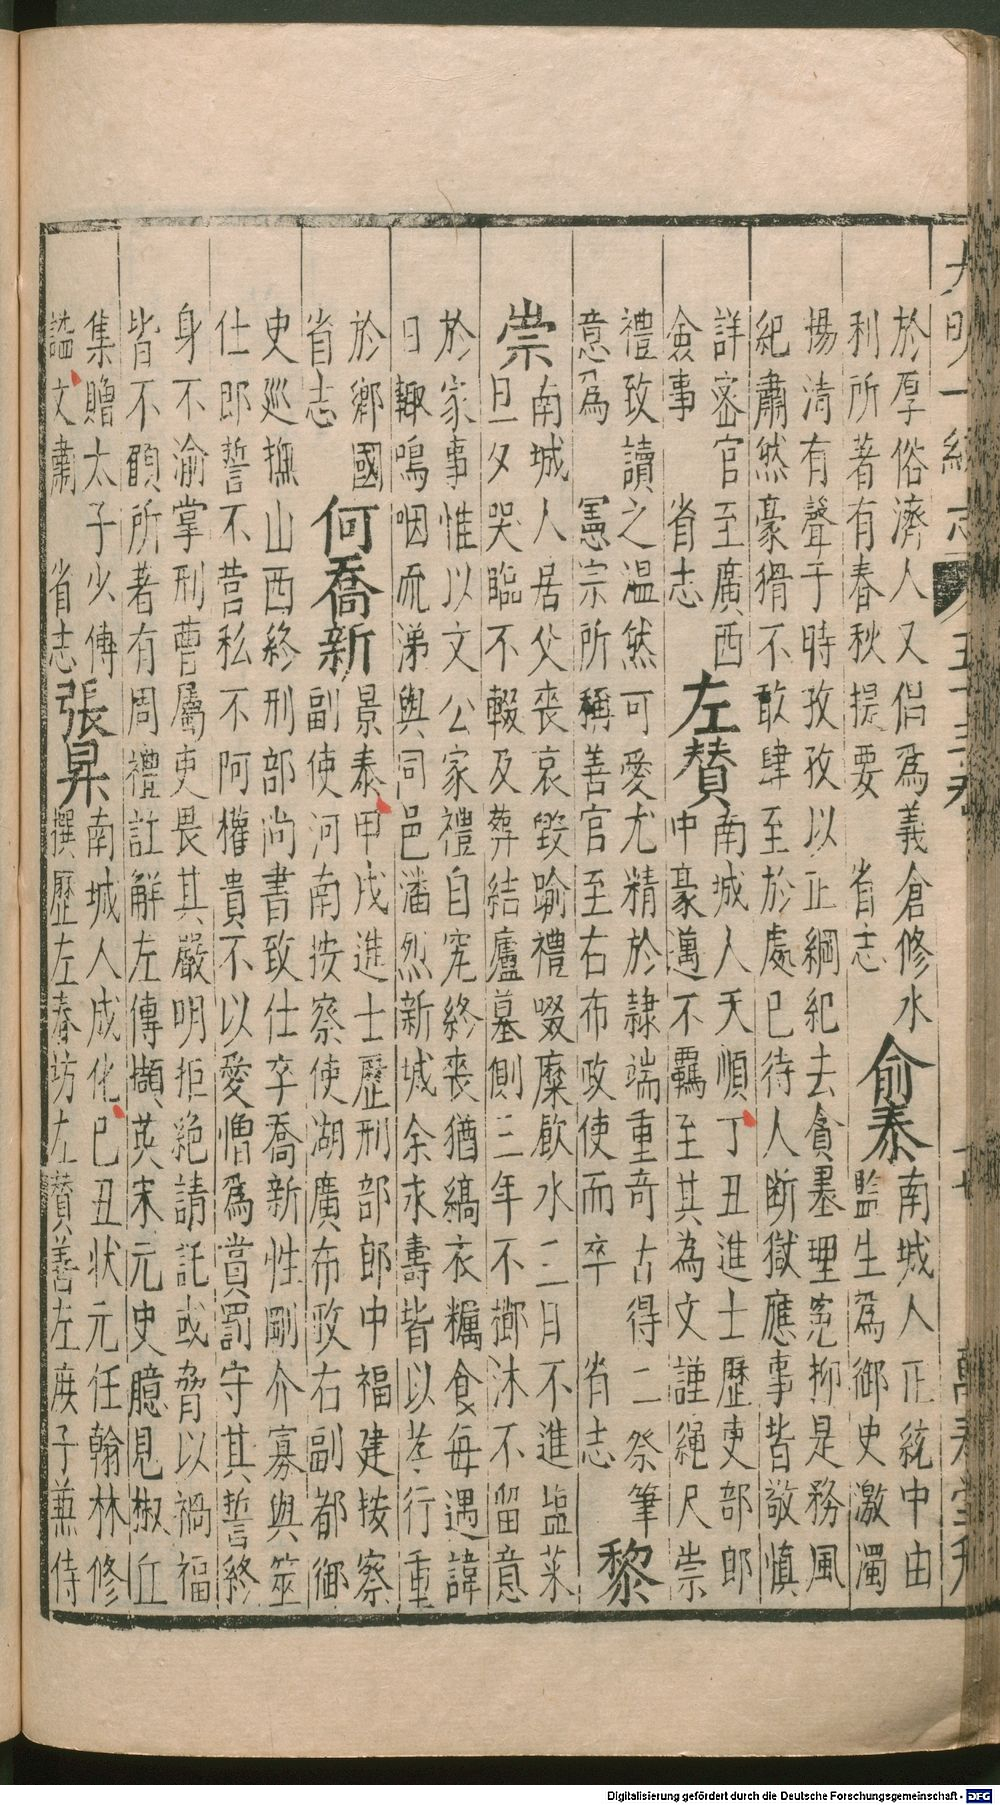 大明一統志 五十三卷 十七 萬壽堂刊
於厚俗濟人又倡爲義倉修水
利所著有春秋提要 省志
俞泰 南城人正統中由
監生爲御史激濁
揚清有聲于時孜孜以正綱紀去貪墨理冤抑是務風
紀肅然豪猾不敢肆至於處已待人断獄應事皆敬慎
詳密官至廣西
僉事 省志
左贊 南城人天順丁丑進士歷吏部郎
中豪邁不羈至其為文謹繩尺崇
禮攻讀之溫然可愛尤精於隸端重奇古得二祭筆
意爲 憲宗所稱善官至右布政使而卒 省志
黎
崇 南城人居父喪哀毀踰禮啜糜歠水二日不進塩菜
旦夕哭臨不輟及葬結廬墓側三年不櫛沐不留意
於家事惟以文公家禮自宄終喪猶縞衣糲食每遇諱
日輙鳴咽流涕與同邑潘烈新城余求壽皆以孝行重
於鄉國
省志
何喬新 景泰甲戌進士歷刑部郎中福建按察
副使河南按察使湖廣布政右副都御
史巡撫山西終刑部尚書致仕卒喬新性剛介寡與筮
仕即誓不営私不阿權貴不以愛憎爲賞罰守其誓終
身不渝掌刑曹屬吏畏其嚴明拒絶請託或脅以禍福
皆不顧所著有周禮註解左傳擷英宋元史臆見椒丘
集贈太子少傅
謚文肅 省志
張昇 南城人成化已丑状元任翰林修
撰歷左春坊左賛善左庶子兼侍
Digitalisierung gefördert durch die Deutsche Forschungsgemeinschaft - DFG